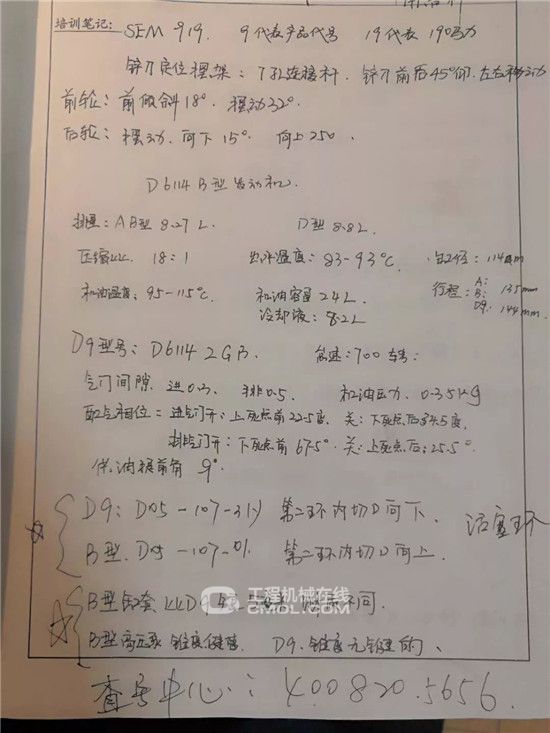 培训笔记: SEM 919. 9代表产品代号 19代表 190马力
铲刀定位摆架: 7孔连接杆. 铲刀前后45°倾, 左右移动
前轮: 前倾斜 18°. 摆动32°
后轮: 摆动. 向下 15°. 向上250.
D6114B型发动机.
排量: AB型 8.27L. D型 8.8L.
压缩比. 18:1 出水温度: 83-93°C. 缸径: 114mm
机油温度: 95-115°C. 机油容量 24L 行程: A: B: 135mm
冷却液: 8.2L D9: 144mm
D9型号: D6114 ZGB. 怠速: 700
气门间隙 进0.3. 排0.5. 机油压力 0.35kg
配气相位: 进气门开: 上死点前22.5度. 关: 下死点后34.5度.
排气门开: 下死点前 67.5°. 关: 上死点后: 25.5°.
供油提前角 9°.
D9: D05-107-31 第二环内切口向下. 活塞环
B型. D05-107-01. 第二环内切口向上.
B型缸套比D9 不同.
B型高压泵 锥度键. D9. 锥度无键的.
工程机械在线
CMOL.COM
查号中心: 400.820.5656.